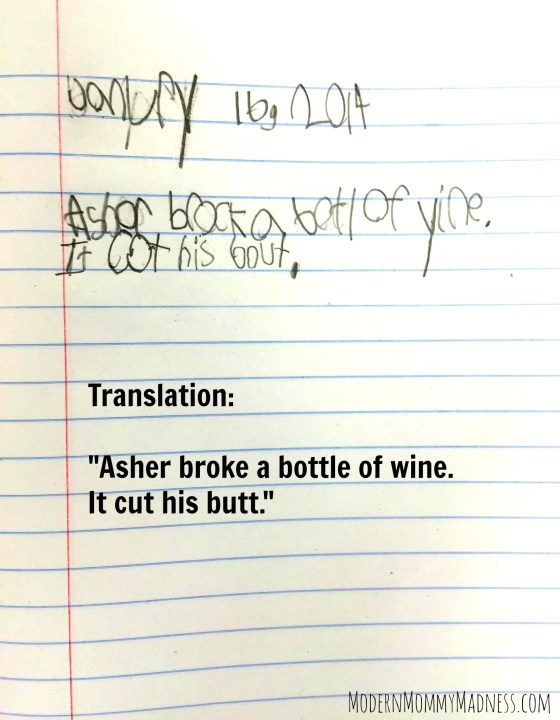 Janury 16, 2014
Asher brock a botl of yine.
It cot his bout.
Translation:
"Asher broke a bottle of wine.
It cut his butt."
MODERNMOMMYMADNESS.COM